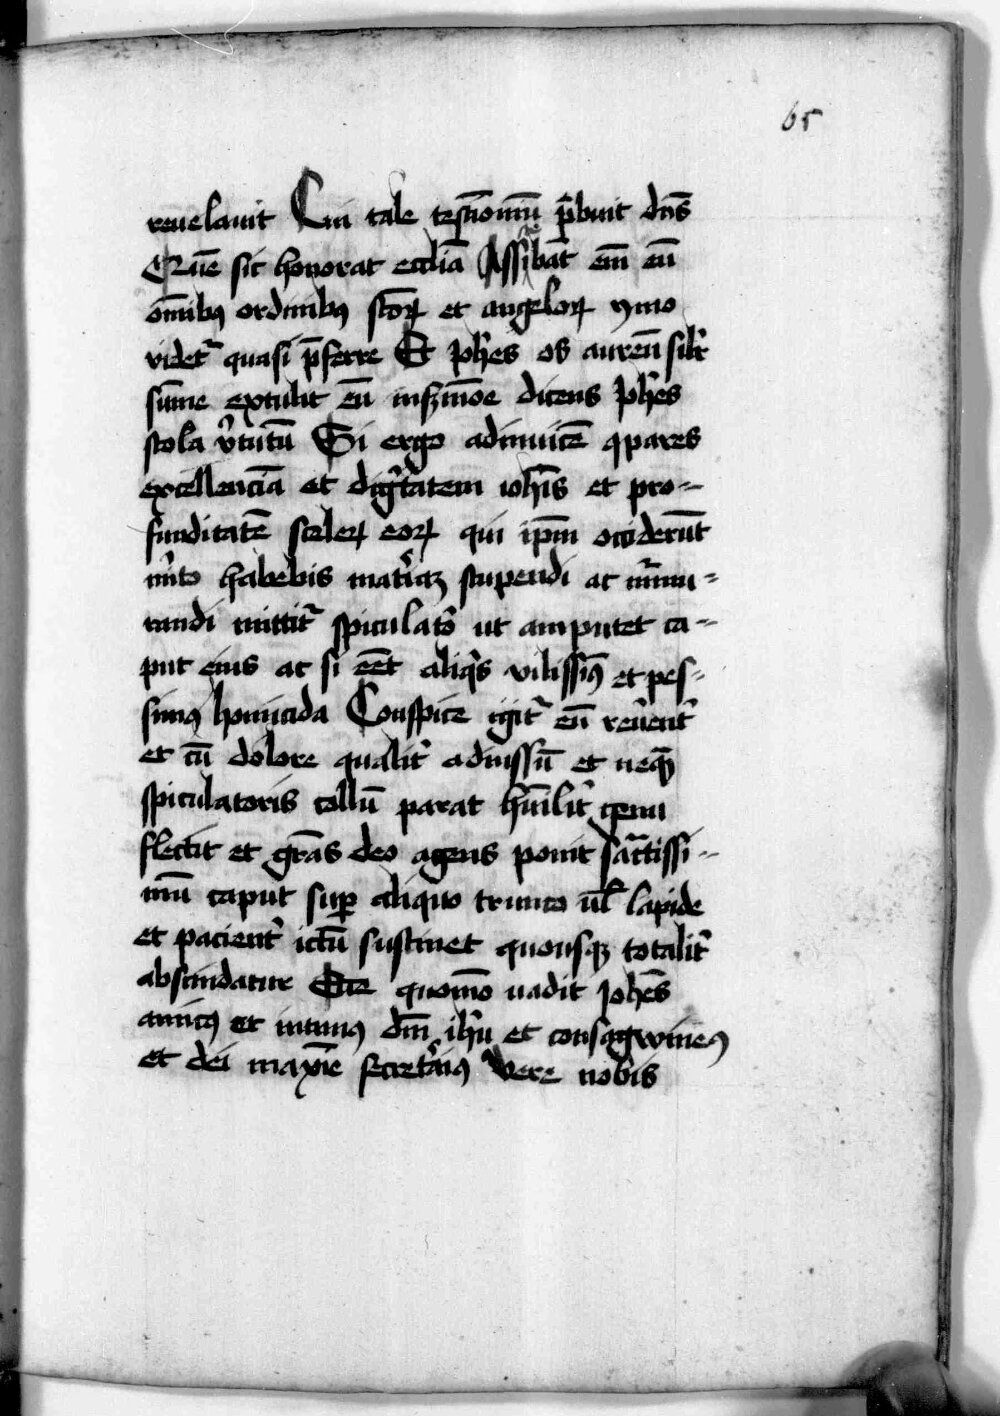 65
reuelauit Cui tale testīoniū p̄buit dn̄s
Quē sic honorat ecclīa Assc̄bat em̄ eū
om̄ibꝰ ordinibꝰ sc̄toꝝ et angeloꝝ ymo
videtᷣ quasi p̄ferre Et Joh̄es os aureū silr̄
sūme extulit eū in sermōe dicens Joh̄es
scola v̓tutū Si ergo adinuicē ꝯpares
excellenciā et dig̓tatem ioh̄is et pro-
funditatē sceleꝝ eoꝝ qui ip̄m occiderūt
m̓ito habebis mat̓iaꝫ stupendi ac am̓mi-
randi mittitᷣ spiculato̓ ut amputet ca-
put eius ac si eēt aliq̓s vilissiꝰ et pes-
simꝰ homicida Conspice igitᷣ eū reūent̓
et cū dolore qualit̓ ad iussū et neqꝫ
spiculatoris collū parat hūilit̓ genu
flectit et gr̄as deo agens ponit sāctissi-
mū caput suꝑ aliquo trunco ul̄ lapide
et pacient̓ ictū sustinet quousqꝫ totalit̓
abscindatur Ecce quomō uadit Joh̄es
amicꝰ et intimꝰ dn̄i ih̄u et consagwineꝰ
et dei maxīe secret̓iꝰ vere nobis